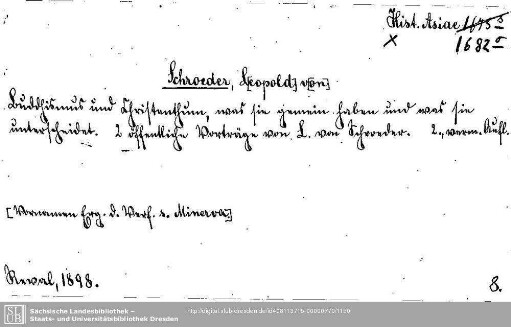 Hist. Asiae 1675 d
x 1682 d
Schroeder, L[eopold] v[on]
Buddhismus und Christenthum, was sie gemein haben und was sie
unterscheidet. 2 öffentliche Vorträge von L. von Schroeder. 2., verm. Aufl.
[Vornamen Erg. d. Verf. s. Minerva]
Reval, 1898.
8.
SLUB
Sächsische Landesbibliothek –
Staats- und Universitätsbibliothek Dresden